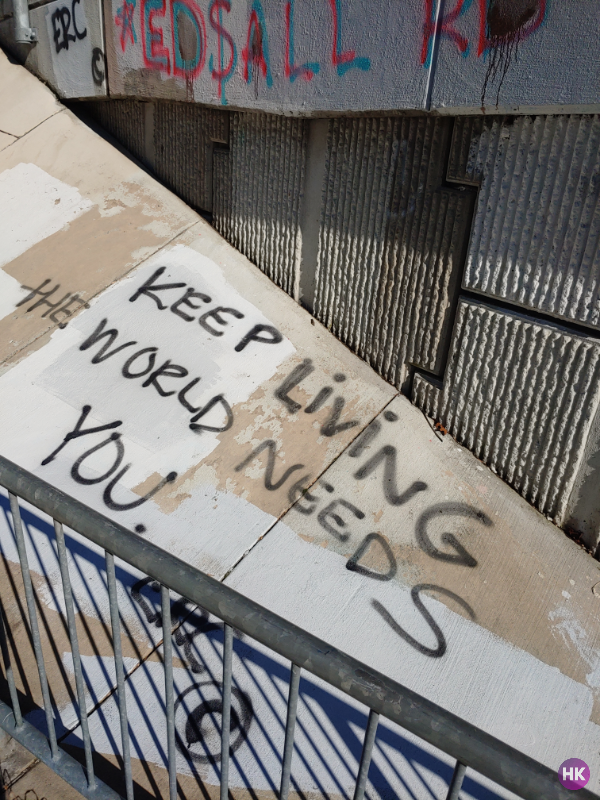 ERC
*ED$ALL
©
KEEP LIVING
THE WORLD NEEDS
YOU.
©
HK